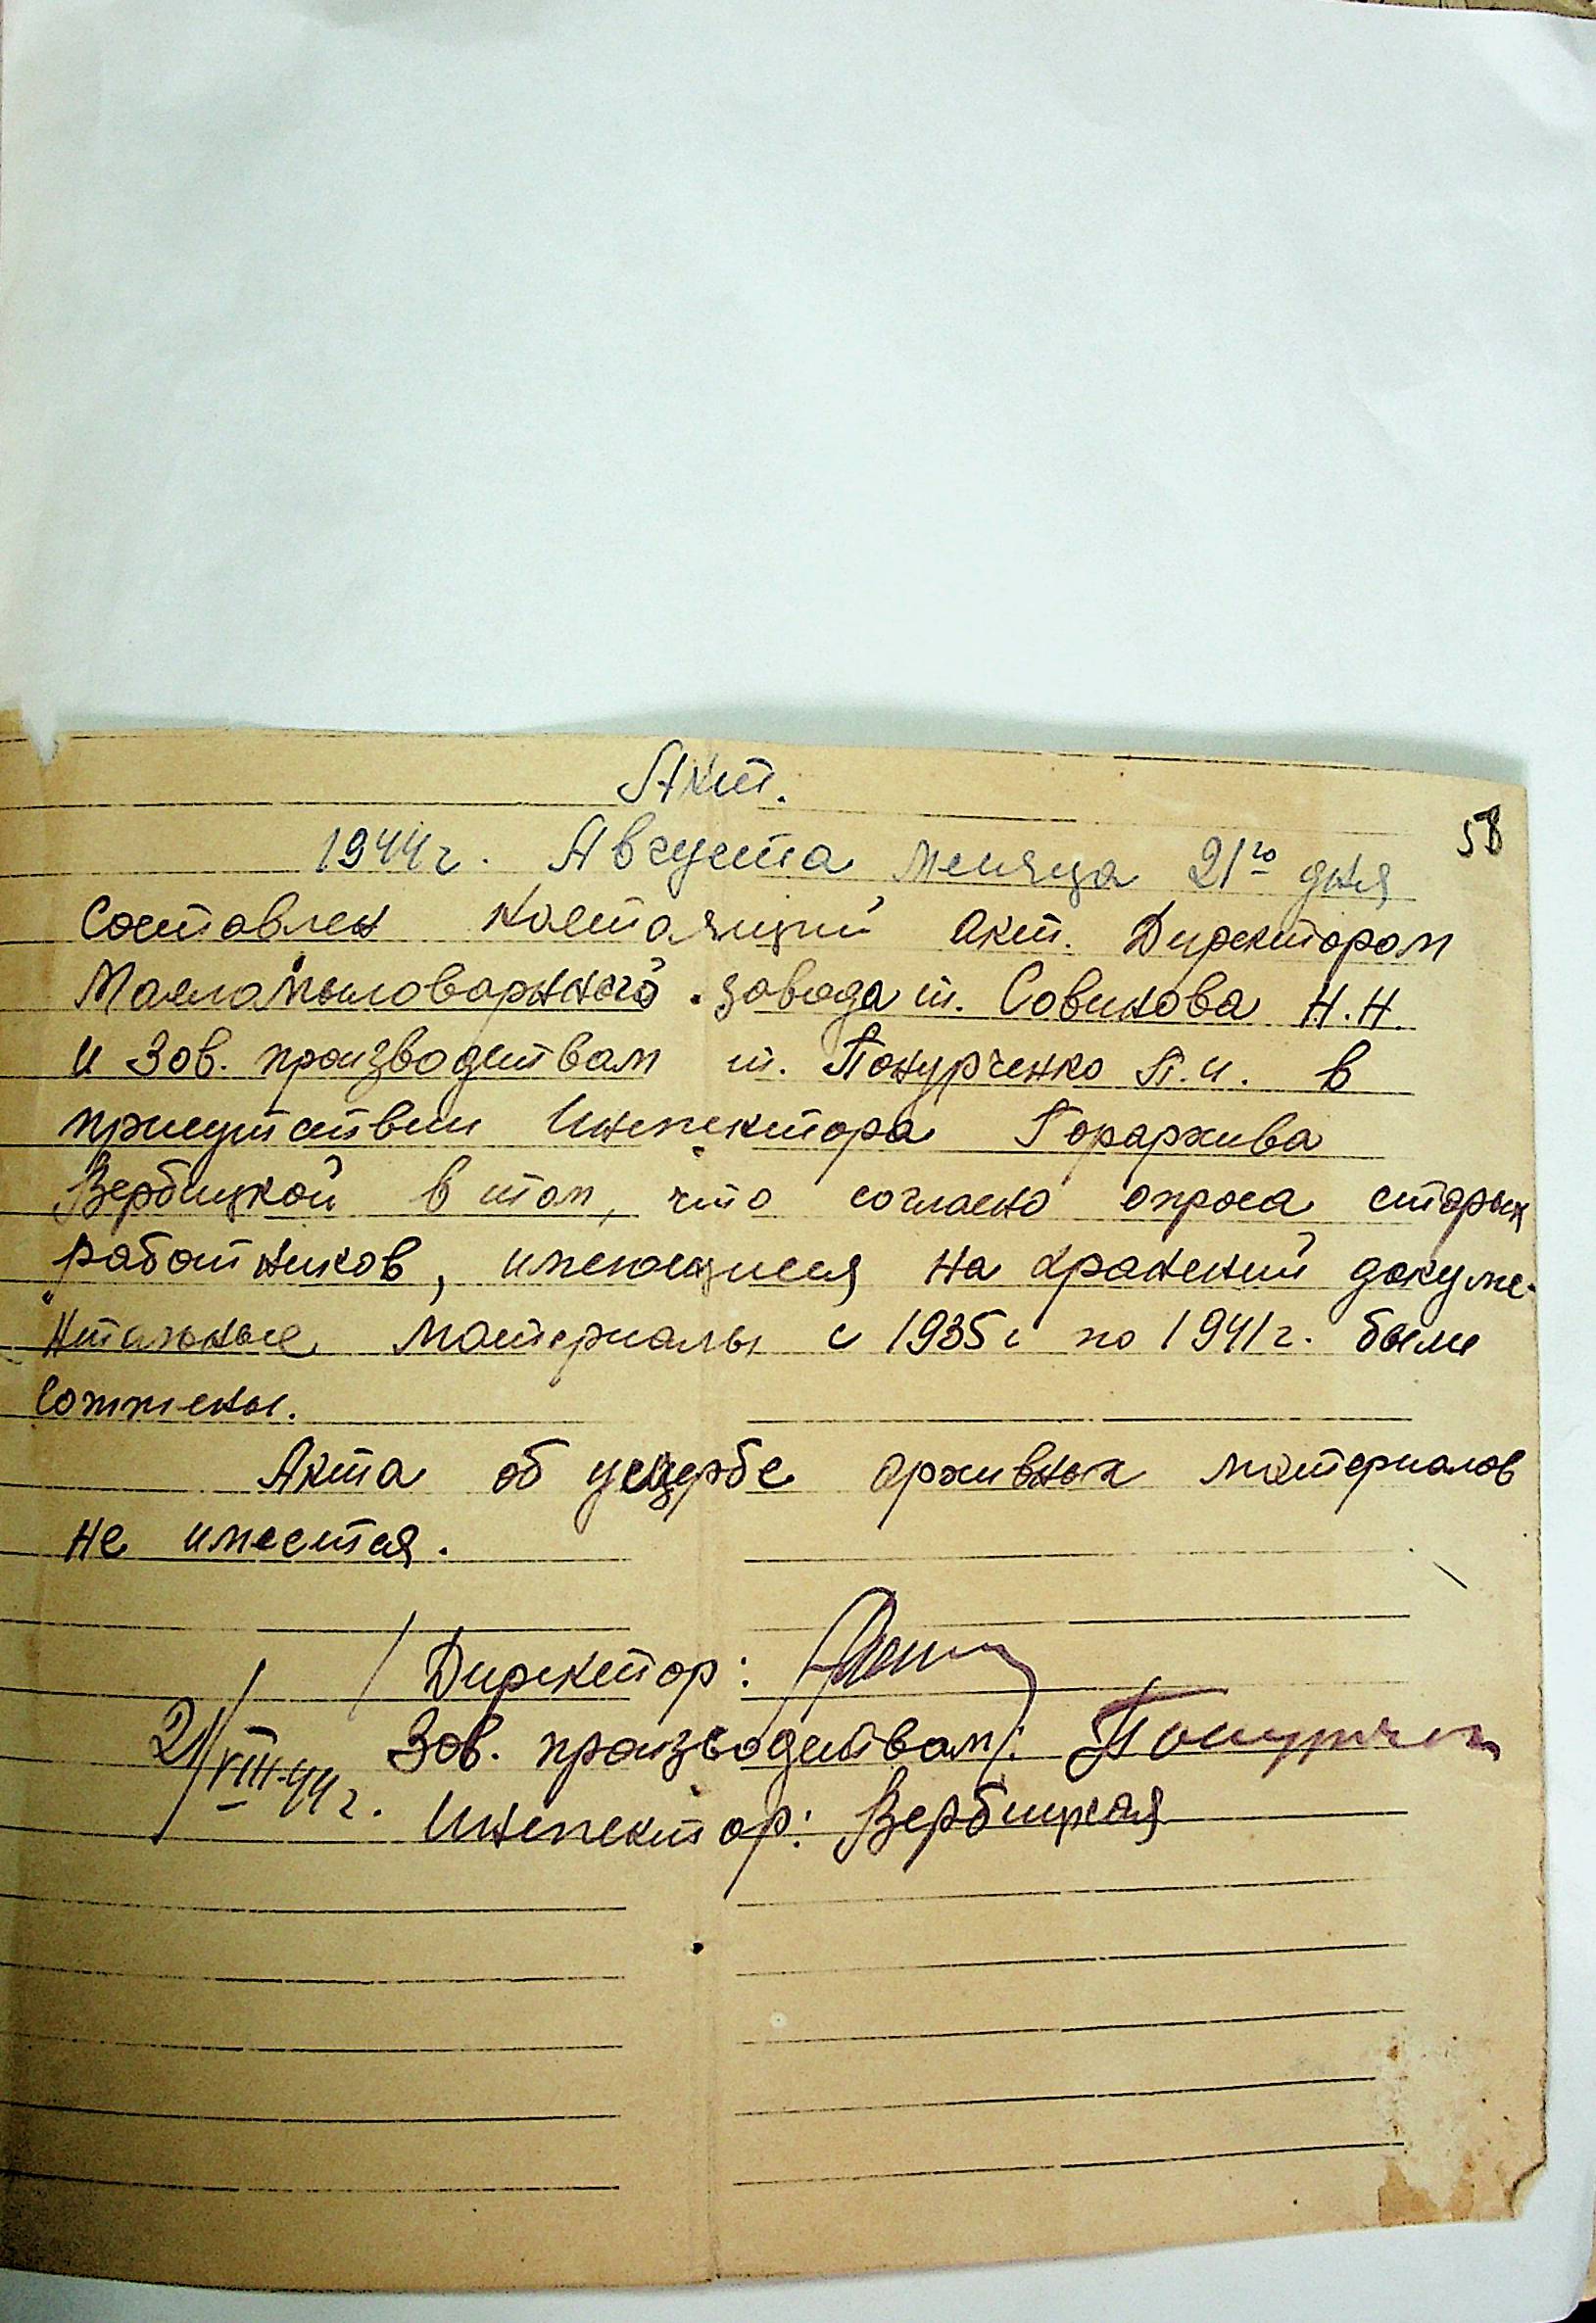 Акт.
58
1944 г. Августа месяца 21го дня
Составлен настоящий акт. Директором
Масломыловаренного завода т. Совинова Н.Н.
и Зав. производствам т. Понурченко П.И. в
присутствии Инспектора Горархива
Вербицкой в том, что согласно опроса старых
работников, имеющиеся на хранений докуме-
"нтальные материалы с 1935 г по 1941 г. были
сожжены.
Акта об ущербе архивных материалов
не имеется.
Директор:
21/VIII-44 г. Зав. производствам: Понурченко
Инспектор: Вербицкая